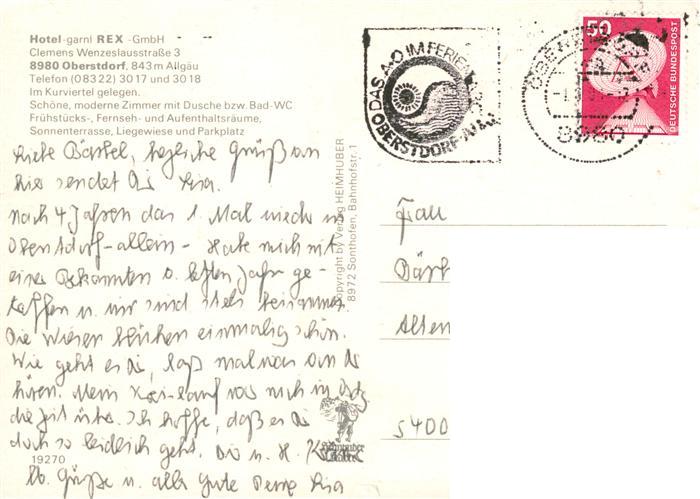 Hotel-garni REX -GmbH
Clemens Wenzeslausstraße 3
8980 Oberstdorf, 843 m Allgäu
Telefon (08322) 3017 und 3018
Im Kurviertel gelegen.
Schöne, moderne Zimmer mit Dusche bzw. Bad-WC
Frühstücks-, Fernseh- und Aufenthaltsräume,
Sonnenterrasse, Liegewiese und Parkplatz
Liebe Bärbel, herzliche Grüße von
hier sendet Dir
nach 4 Jahren das 1. Mal wieder in
Oberstdorf - allein - Habe mich mit
einer Bekannten v. letzten Jahr ge-
troffen u. wir sind stets beisammen.
Die Wiesen blühen einmalig schön.
Wie geht es Dir, laß mal was von Dir
hören. Mein
die Zeit über. Ich hoffe, daß es Dir
doch so leidlich geht.
lb. Grüße u. alles Gute Deine
19270
Copyright by Verlag HEIMHUBER
8972 Sonthofen, Bahnhofstr. 1
DAS A-O IM FERIEN
OBERSTDORF
8980
50
DEUTSCHE BUNDESPOST
Frau
Bärb
Alten
5400